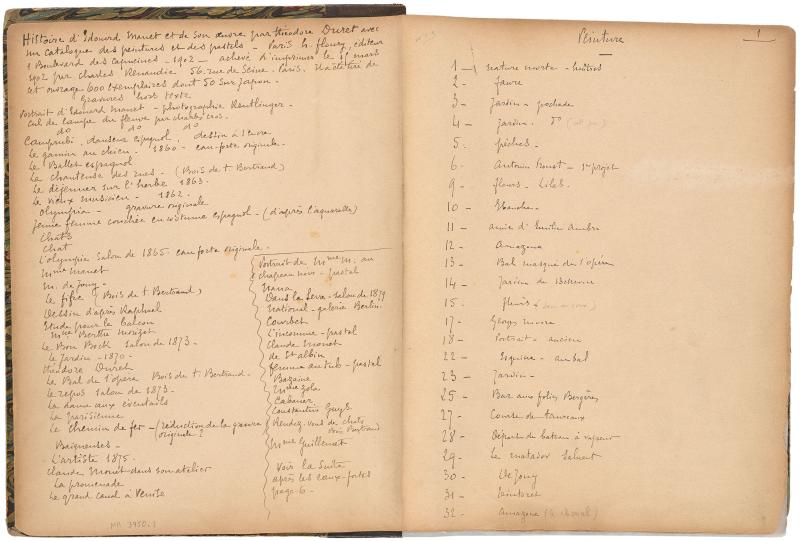 Histoire d'Edouard Manet et de son œuvre par Théodore Duret avec
un catalogue des peintures et des pastels - Paris h. floury, editeur
1 Boulevard des Capucines - 1902 - achevé d'imprimer le 15 mars
1902 par Charles Renaudie 56. rue de Seine. Paris. Il a été tiré de
cet ouvrage 600 Exemplaires dont 50 sur Japon.
Gravures hors texte
Portrait d'Edouard Manet - photographie Reutlinger.
Cul de lampe du fleuve par Charles Cros.
do do do
Camprubi, danseur espagnol, dessin à l'encre
Le gamin au chien. 1860 - eau-forte originale.
Le Ballet espagnol
La chanteuse des rues - (Bois de t. Bertrand)
Le déjeuner sur l'herbe 1863.
Le vieux musicien - 1862.
Olympia - gravure originale
Jeune femme couchée en costume espagnol - (d'après l'aquarelle)
Chats
Chat
L'olympia Salon de 1865 eau forte originale.
Mme Manet
M. de Jouy -
Le fifre (Bois de t. Bertrand)
Dessin d'après Raphael
Etude pour le balcon
Mme Berthe Morizot
Le Bon Bock Salon de 1873 -
Le Jardin - 1870 -
Théodore Duret
Le Bal de l'opera Bois de t. Bertrand -
Le repos Salon de 1873 -
La dame aux éventails
La Parisienne
Le Chemin de fer - (réduction de la gravure
originale ?
Baigneuses -
L'artiste 1875.
Claude Monet dans son atelier
La promenade
Le grand canal à Venise
Portrait de Mme M. au
chapeau noir - pastel
Nana
Dans la Serre - Salon de 1879
National - galerie Berlin.
Courbet
L'inconnue - pastel
Claude Monet
de St albin
femme au tub - pastel
Bazaine
Mme Zola
Cabaner
Constantin Guys.
Rendez-vous de chats
bois Bertrand
Mme Guillemet
Voir la Suite
après les eaux-fortes
page 6 -
MA 3950.1
Peinture
1
1 - nature morte - huîtres
2 - faure
3 - Jardin - pochade
4 - Jardin. do
5 - pêches -
6 - Antonin Proust - 1er projet
9 - fleurs - Lilas.
10 - Ebauche -
11 - amie d'Emilie Ambre
12 - Amazone
13 - Bal masqué de l'opéra
14 - Jardin de Bellevue
15 - fleurs
17 - Georges Moore
18 - Portrait - ancien
22 - Esquisse - au bal
23 - Jardin -
25 - Bar aux folies Bergères
27 - Course de taureaux
28 - Départ du bateau à vapeur
29 - Le matador Saluant
30 - De Jouy
31 - Tintoret
32 - Amazone (à cheval)